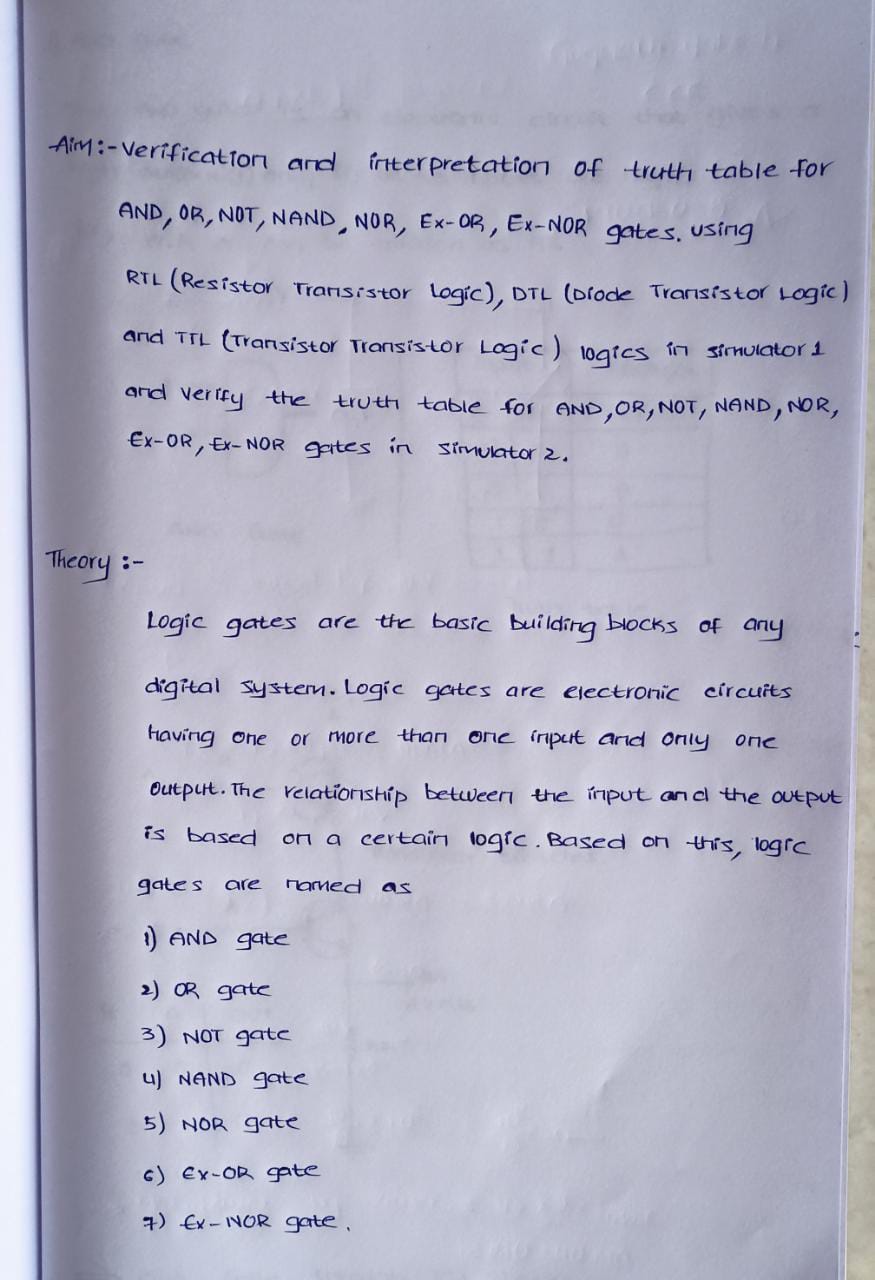 Aim:- Verification and interpretation of truth table for
AND, OR, NOT, NAND, NOR, Ex-OR, Ex-NOR gates. using
RTL (Resistor Transistor Logic), DTL (Diode Transistor Logic)
and TTL (Transistor Transistor Logic) logics in simulator 1
and verify the truth table for AND, OR, NOT, NAND, NOR,
Ex-OR, Ex-NOR gates in simulator 2.
Theory :-
Logic gates are the basic building blocks of any
digital system. Logic gates are electronic circuits
having one or more than one input and only one
output. The relationship between the input and the output
is based on a certain logic. Based on this, logic
gates are named as
1) AND gate
2) OR gate
3) NOT gate
4) NAND gate
5) NOR gate
6) Ex-OR gate
7) Ex-NOR gate.